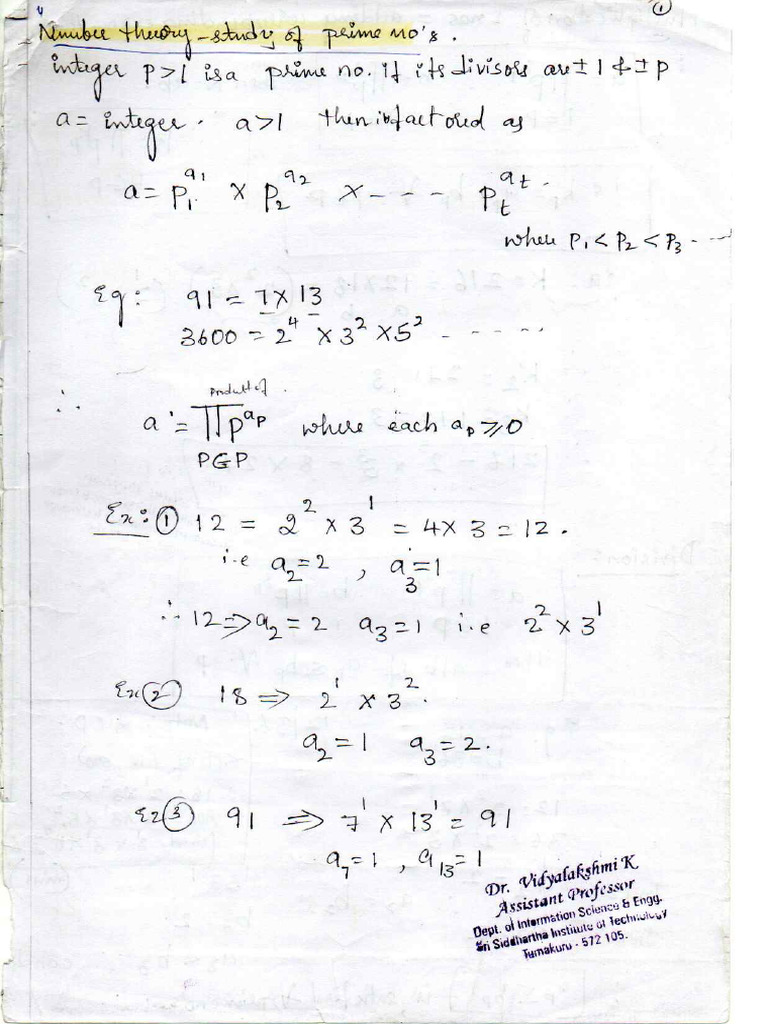 ①
Number theory - study of prime no's.
integer p>1 is a prime no. if its divisors are ±1 & ±p
a = integer. a>1 then is factored as
a = p₁^a₁ × p₂^a₂ × - - - - p_t^a_t.
where p₁ < p₂ < p₃ - - --
Eg: 91 = 7×13
3600 = 2⁴ × 3² × 5² - - - - - -
product of
∴ a = ∏ p^a_p where each a_p ≥ 0
PGP
Ex: ① 12 = 2² × 3¹ = 4×3 = 12.
i.e a₂=2 , a₃=1
∴ 12 ⇒ a₂=2 a₃=1 i.e 2² × 3¹
Ex ② 18 ⇒ 2¹ × 3².
a₂=1 a₃=2.
Ex ③ 91 ⇒ 7¹ × 13¹ = 91
a₇=1 , a₁₃=1
Dr. Vidyalakshmi K
Assistant Professor
Dept. of Information Science & Engg.
Sri Siddhartha Institute of Technology
Tumakuru - 572 105.